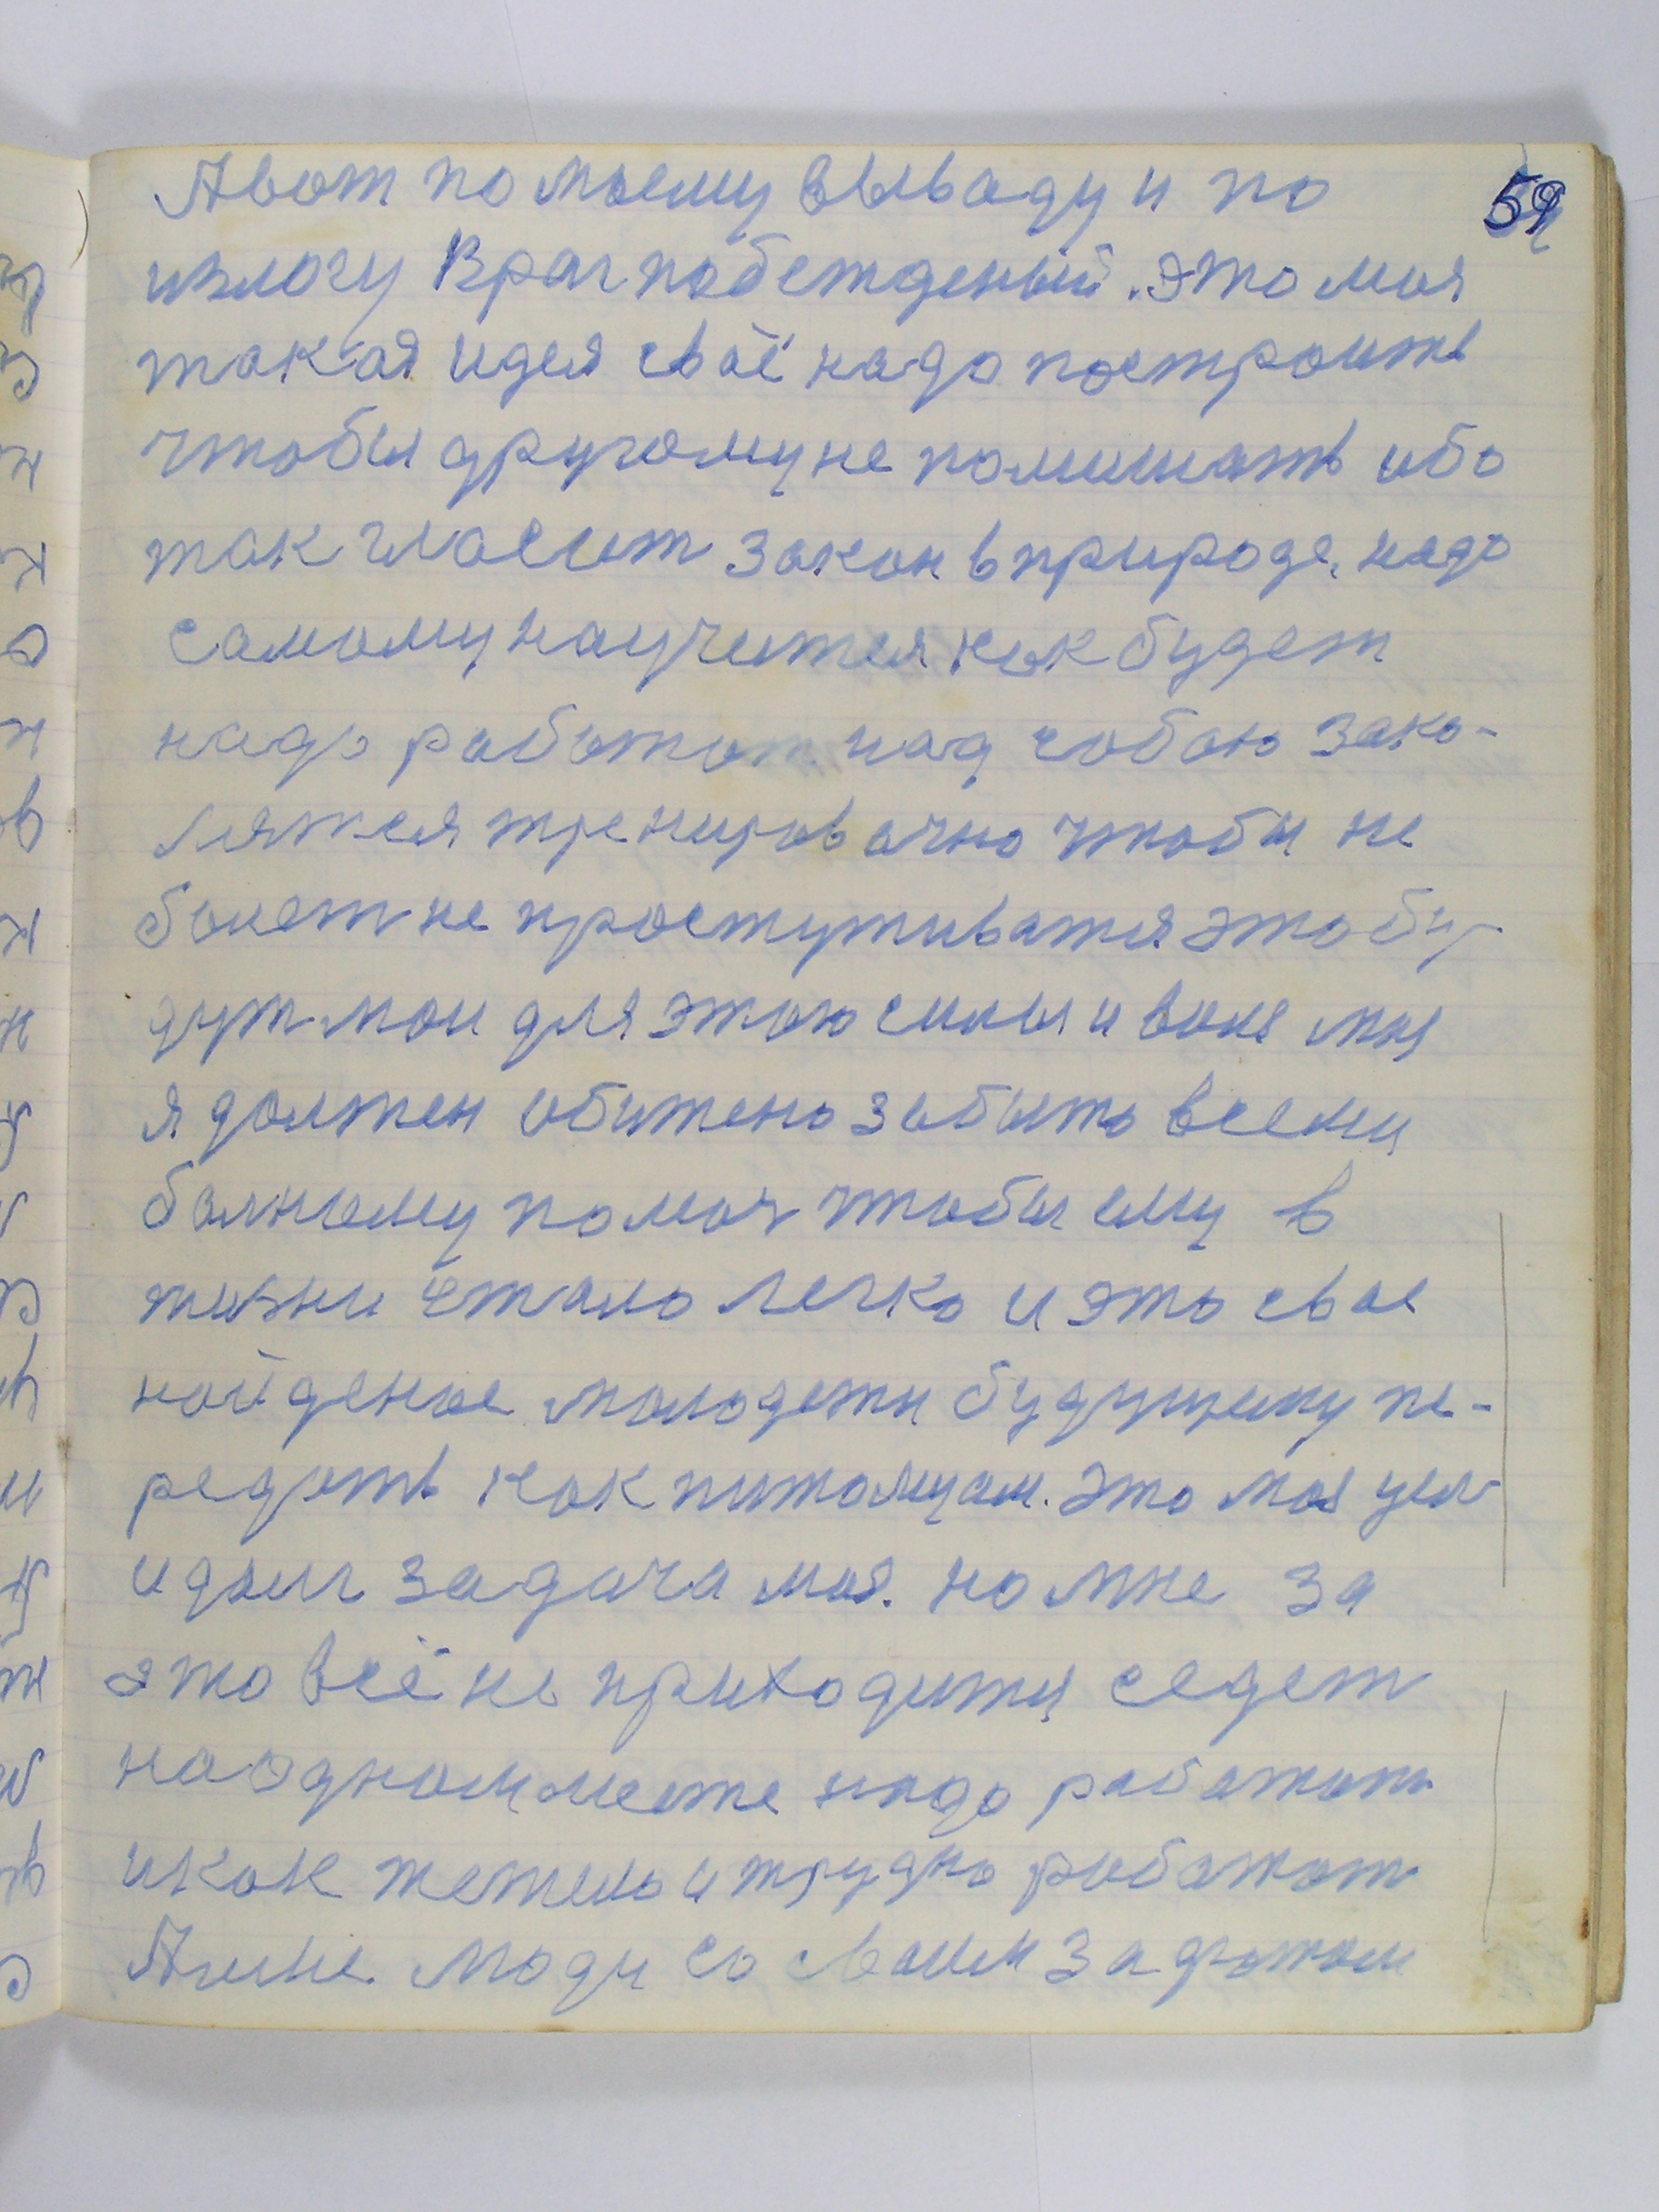 59
Авот по моему выводу и по
излогу Враг побежденый. это моя
такая идея своё надо построить
чтобы другому не помишать ибо
так гласит закон в природе, надо
самому научится как будет
надо работат над собою зако-
лятся тренировачно чтобы не
болет не простуживатся это бу-
дут мои для этого силы и воля моя
я должен обижено забыто всему
болному помоч чтобы ему в
жизни стало легко и это свое
найденое молодежи будущему пе-
редать как питомцам. это моя цел
и далг задача моя. но мне за
это всё не приходится седет
на одном месте надо работат
и как тежело и трудно работат
А мне люди со своим